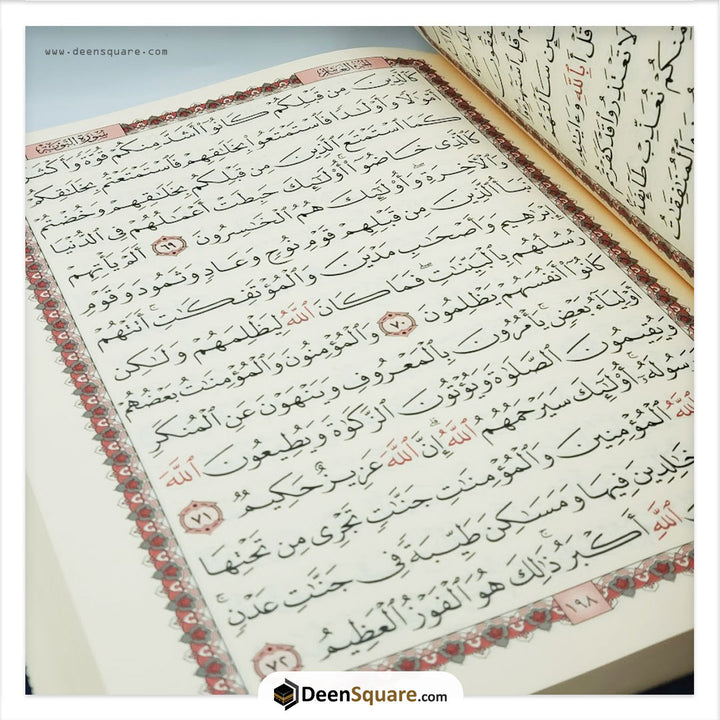 www.deensquare.com
سُورَةُ التَّوْبَةِ
كَالَّذِينَ مِن قَبْلِكُمْ كَانُوٓا۟ أَشَدَّ مِنكُمْ قُوَّةً وَأَكْثَرَ
أَمْوَٰلًا وَأَوْلَـٰدًا فَٱسْتَمْتَعُوا۟ بِخَلَـٰقِهِمْ فَٱسْتَمْتَعْتُم بِخَلَـٰقِكُمْ
كَمَا ٱسْتَمْتَعَ ٱلَّذِينَ مِن قَبْلِكُم بِخَلَـٰقِهِمْ وَخُضْتُمْ
كَٱلَّذِى خَاضُوٓا۟ ۚ أُو۟لَـٰٓئِكَ حَبِطَتْ أَعْمَـٰلُهُمْ فِى ٱلدُّنْيَا
وَٱلْـَٔاخِرَةِ ۖ وَأُو۟لَـٰٓئِكَ هُمُ ٱلْخَـٰسِرُونَ ٦٩ أَلَمْ يَأْتِهِمْ
نَبَأُ ٱلَّذِينَ مِن قَبْلِهِمْ قَوْمِ نُوحٍ وَعَادٍ وَثَمُودَ وَقَوْمِ
إِبْرَٰهِيمَ وَأَصْحَـٰبِ مَدْيَنَ وَٱلْمُؤْتَفِكَـٰتِ ۚ أَتَتْهُمْ
رُسُلُهُم بِٱلْبَيِّنَـٰتِ ۖ فَمَا كَانَ ٱللَّهُ لِيَظْلِمَهُمْ وَلَـٰكِن
كَانُوٓا۟ أَنفُسَهُمْ يَظْلِمُونَ ٧٠ وَٱلْمُؤْمِنُونَ وَٱلْمُؤْمِنَـٰتُ بَعْضُهُمْ
أَوْلِيَآءُ بَعْضٍ ۚ يَأْمُرُونَ بِٱلْمَعْرُوفِ وَيَنْهَوْنَ عَنِ ٱلْمُنكَرِ
وَيُقِيمُونَ ٱلصَّلَوٰةَ وَيُؤْتُونَ ٱلزَّكَوٰةَ وَيُطِيعُونَ ٱللَّهَ
وَرَسُولَهُۥٓ ۚ أُو۟لَـٰٓئِكَ سَيَرْحَمُهُمُ ٱللَّهُ ۗ إِنَّ ٱللَّهَ عَزِيزٌ حَكِيمٌ ٧١
ٱللَّهُ ٱلْمُؤْمِنِينَ وَٱلْمُؤْمِنَـٰتِ جَنَّـٰتٍ تَجْرِى مِن تَحْتِهَا
خَـٰلِدِينَ فِيهَا وَمَسَـٰكِنَ طَيِّبَةً فِى جَنَّـٰتِ عَدْنٍ ۚ
ٱللَّهِ أَكْبَرُ ۚ ذَٰلِكَ هُوَ ٱلْفَوْزُ ٱلْعَظِيمُ ٧٢
١٩٨
DeenSquare.com